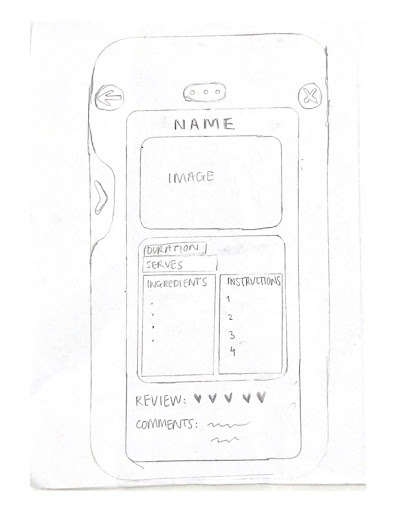 NAME
IMAGE
DURATION
SERVES
INGREDIENTS
INSTRUCTIONS
1
2
3
4
REVIEW:
COMMENTS: